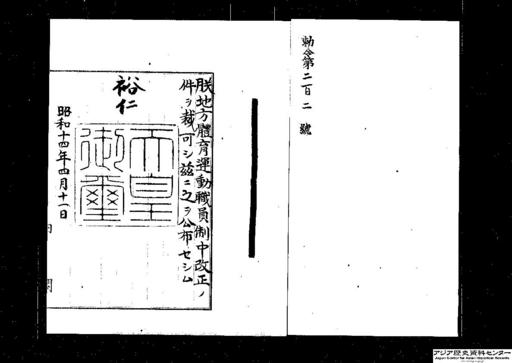 勅令第二百二號
朕地方體育運動職員制中改正ノ
件ヲ裁可シ茲ニ之ヲ公布セシム
裕仁
天皇御璽
昭和十四年四月十一日
内閣
アジア歴史資料センター
Japan Center for Asian Historical Records